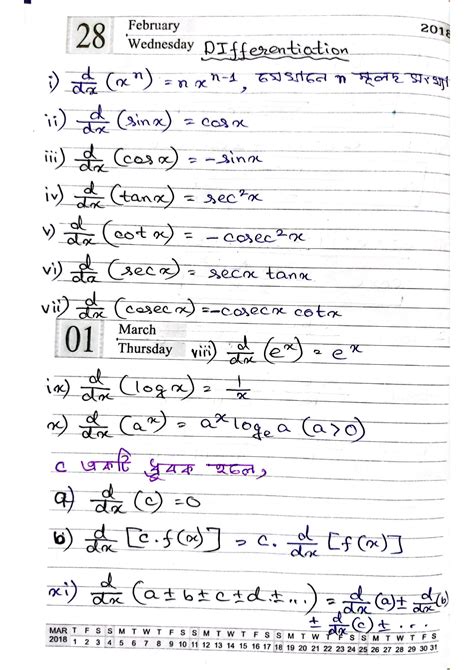 28 February 2018
Wednesday Differentiation
i) d/dx (xⁿ) = n xⁿ⁻¹, যেখানে n মূলদ সংখ্যা
ii) d/dx (sinx) = cosx
iii) d/dx (cosx) = -sinx
iv) d/dx (tanx) = sec²x
v) d/dx (cotx) = -cosec²x
vi) d/dx (secx) = secx tanx
vii) d/dx (cosecx) = -cosecx cotx
01 March
Thursday viii) d/dx (eˣ) = eˣ
ix) d/dx (logx) = 1/x
x) d/dx (aˣ) = aˣ logₑa (a>0)
c একটি ধ্রুবক হলে,
a) d/dx (c) = 0
b) d/dx [c.f(x)] = c. d/dx [f(x)]
xi) d/dx (a ± b ± c ± d ± ...) = d/dx (a) ± d/dx (b)
± d/dx (c) ± ...
MAR T F S S M T W T F S S M T W T F S S M T W T F S S M T W T F S
2018 1 2 3 4 5 6 7 8 9 10 11 12 13 14 15 16 17 18 19 20 21 22 23 24 25 26 27 28 29 30 31